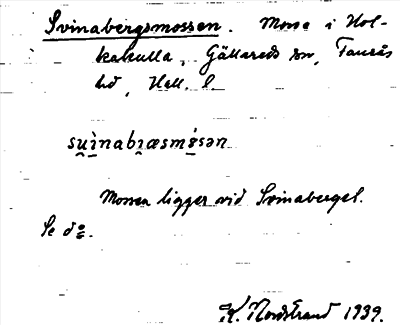 Svinabergsmossen. Mosse i Hol-
kakulla, Gällareds sn, Faurås
hd, Hall. l.
su̯ìnabɪæsmɞ́sən
Mossen ligger vid Svinaberget.
Se d:o.
K. Nordstrand 1939.